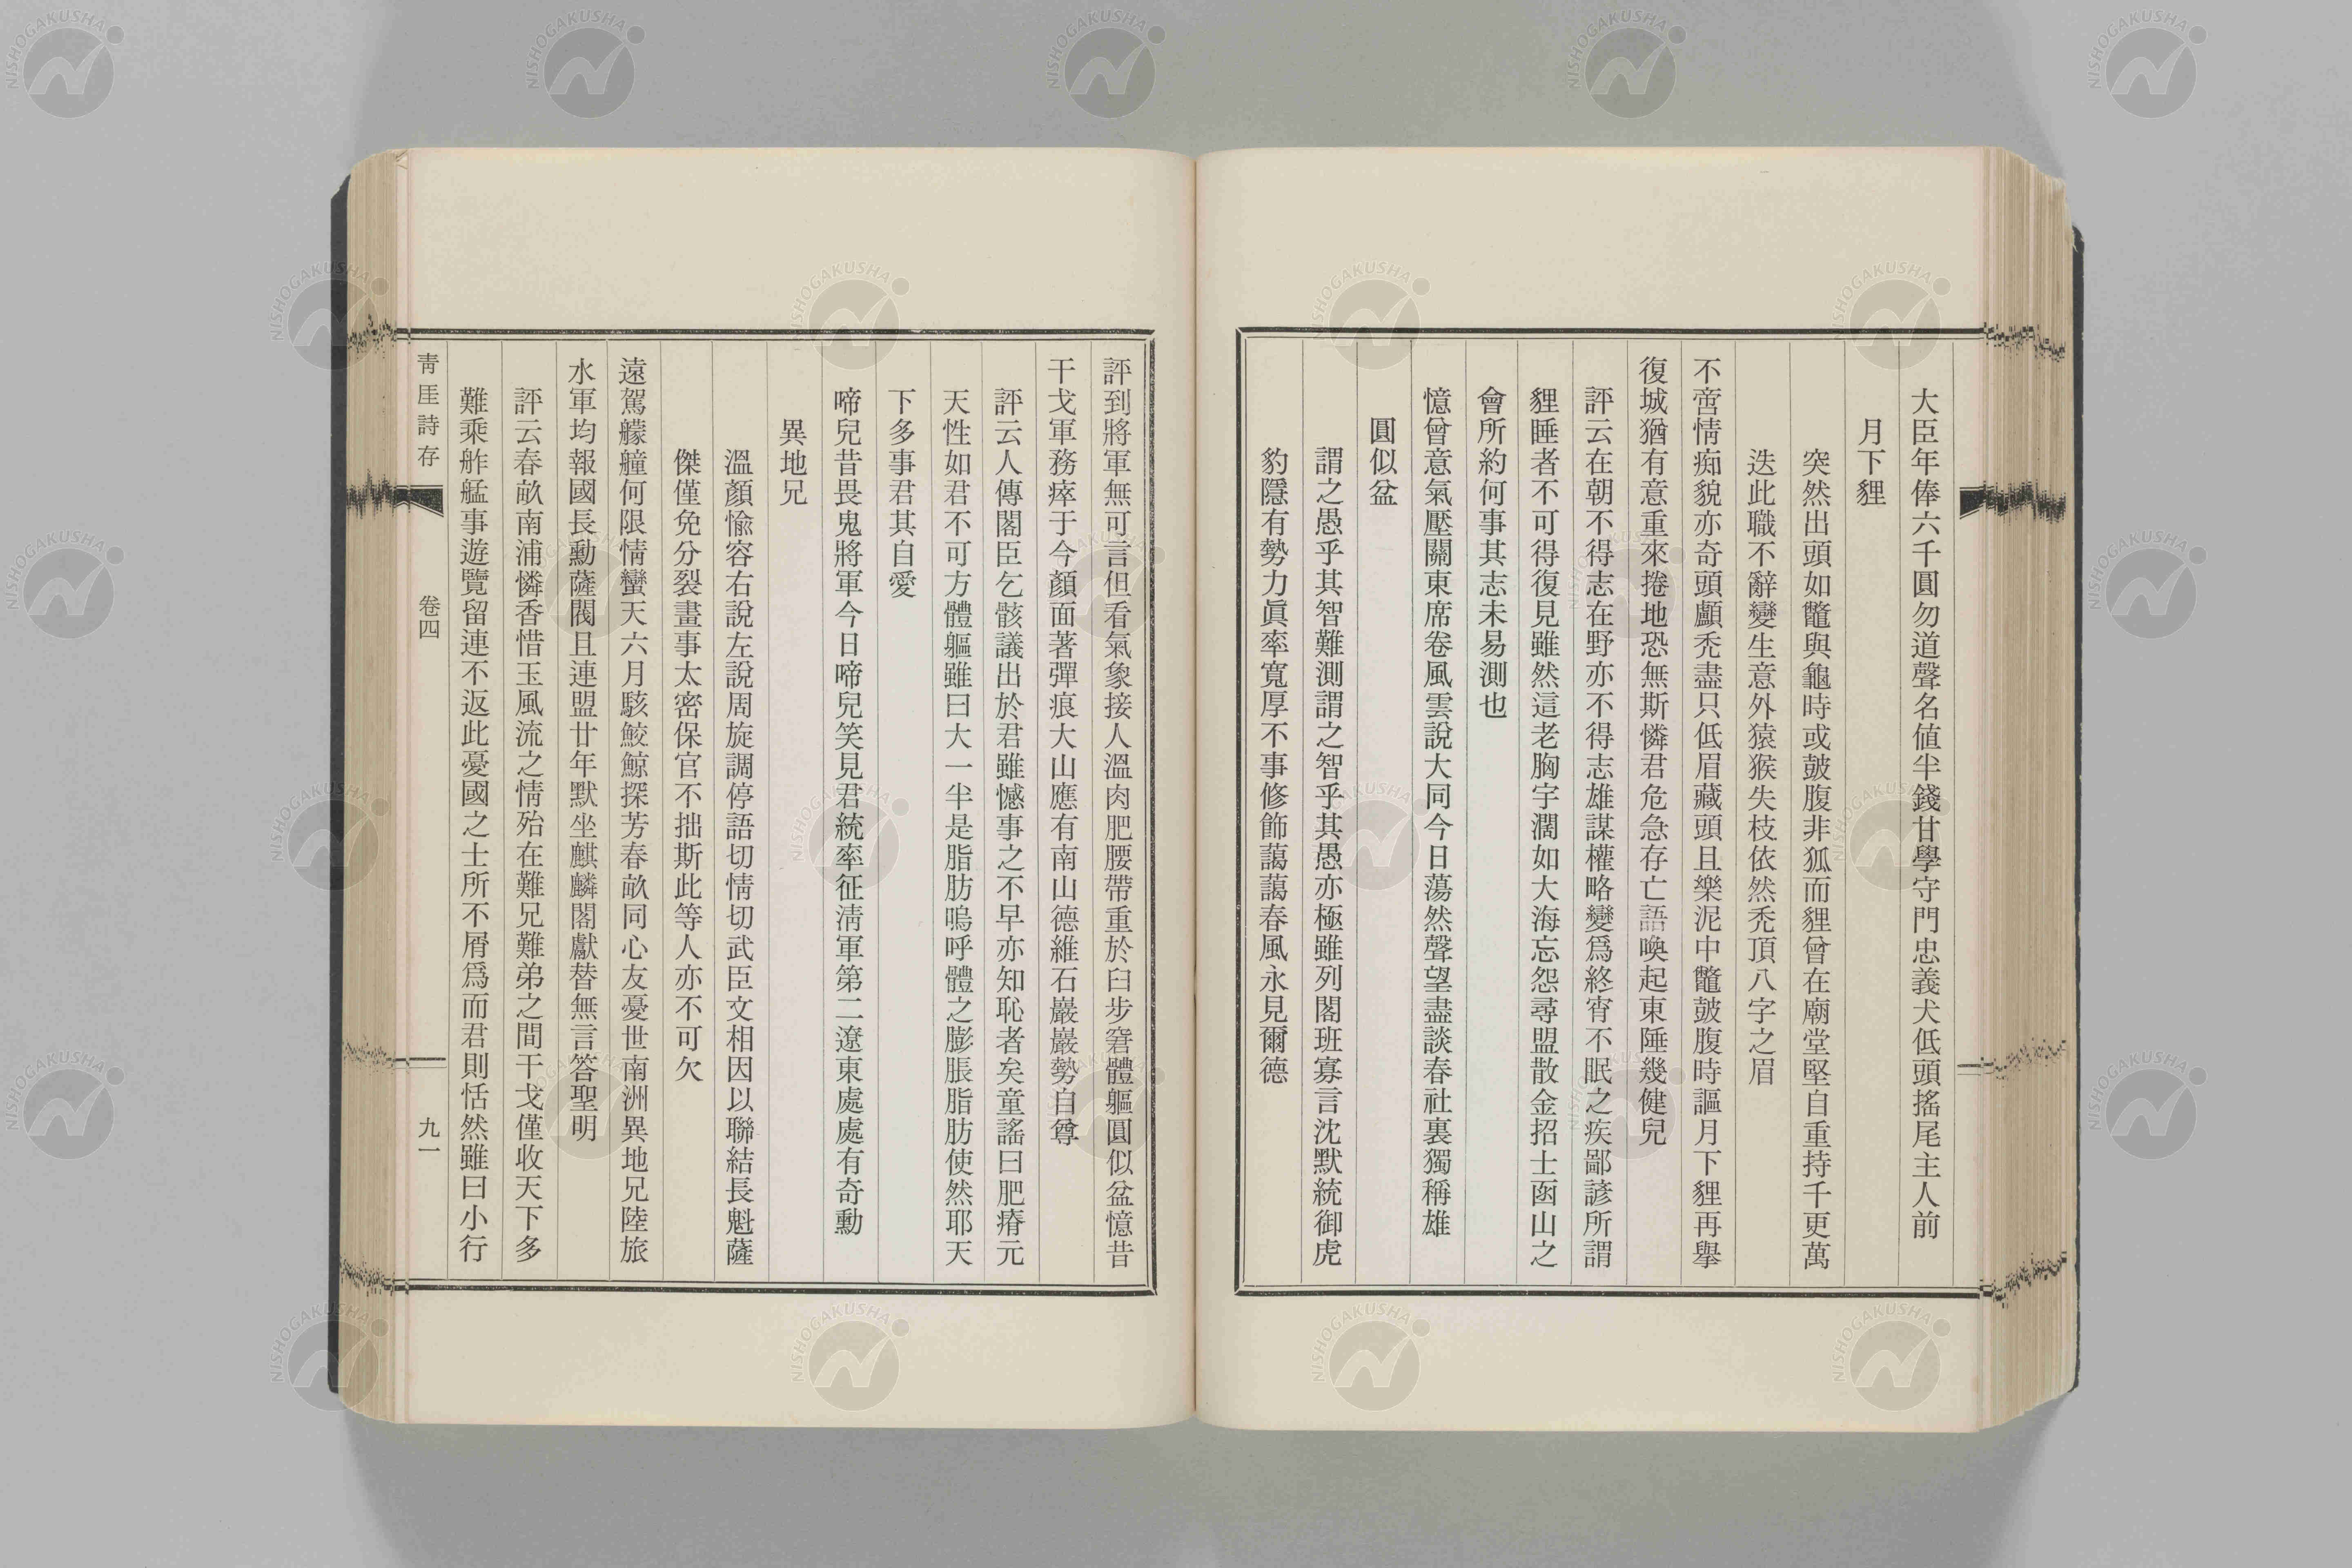 大臣年俸六千圓勿道聲名値半錢甘學守門忠義犬低頭搖尾主人前
月下貍
突然出頭如鼈與龜時或皷腹非狐而貍曾在廟堂堅自重持千更萬
迭此職不辭變生意外猿猴失枝依然禿頂八字之眉
不啻情痴貌亦奇頭顱禿盡只低眉藏頭且樂泥中鼈皷腹時謳月下貍再擧
復城猶有意重來捲地恐無斯憐君危急存亡語喚起東陲幾健兒
評云在朝不得志在野亦不得志雄謀權略變爲終宵不眠之疾鄙諺所謂
貍睡者不可得復見雖然這老胸宇濶如大海忘怨尋盟散金招士函山之
會所約何事其志未易測也
憶曾意氣壓關東席卷風雲說大同今日蕩然聲望盡談春社裏獨稱雄
圓似盆
謂之愚乎其智難測謂之智乎其愚亦極雖列閣班寡言沈默統御虎
豹隱有勢力眞率寬厚不事修飾藹藹春風永見爾德
評到將軍無可言但看氣象接人溫肉肥腰帶重於臼步窘體軀圓似盆憶昔
干戈軍務瘁于今顏面著彈痕大山應有南山德維石巖巖勢自尊
評云人傳閣臣乞骸議出於君雖憾事之不早亦知恥者矣童謠曰肥瘠元
天性如君不可方體軀雖曰大一半是脂肪嗚呼體之膨脹脂肪使然耶天
下多事君其自愛
啼兒昔畏鬼將軍今日啼兒笑見君統率征淸軍第二遼東處處有奇勳
異地兄
溫顏愉容右說左說周旋調停語切情切武臣文相因以聯結長魁薩
傑僅免分裂畫事太密保官不拙斯此等人亦不可欠
遠駕艨艟何限情蠻天六月駭鮫鯨探芳春畝同心友憂世南洲異地兄陸旅
水軍均報國長勳薩閥且連盟廿年默坐麒麟閣獻替無言答聖明
評云春畝南浦憐香惜玉風流之情殆在難兄難弟之間干戈僅收天下多
難乘舴艋事遊覽留連不返此憂國之士所不屑爲而君則恬然雖曰小行
靑厓詩存
卷四
九一
NISHOGAKUSHA